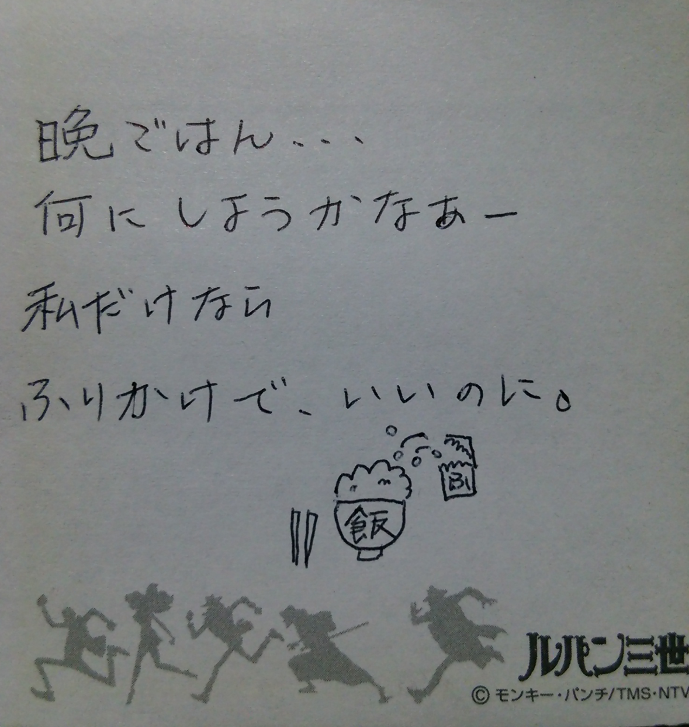 晩ごはん...
何にしようかなあー
私だけなら
ふりかけで、いいのに。
ふ
飯
ルパン三世
©モンキー・パンチ/TMS・NTV